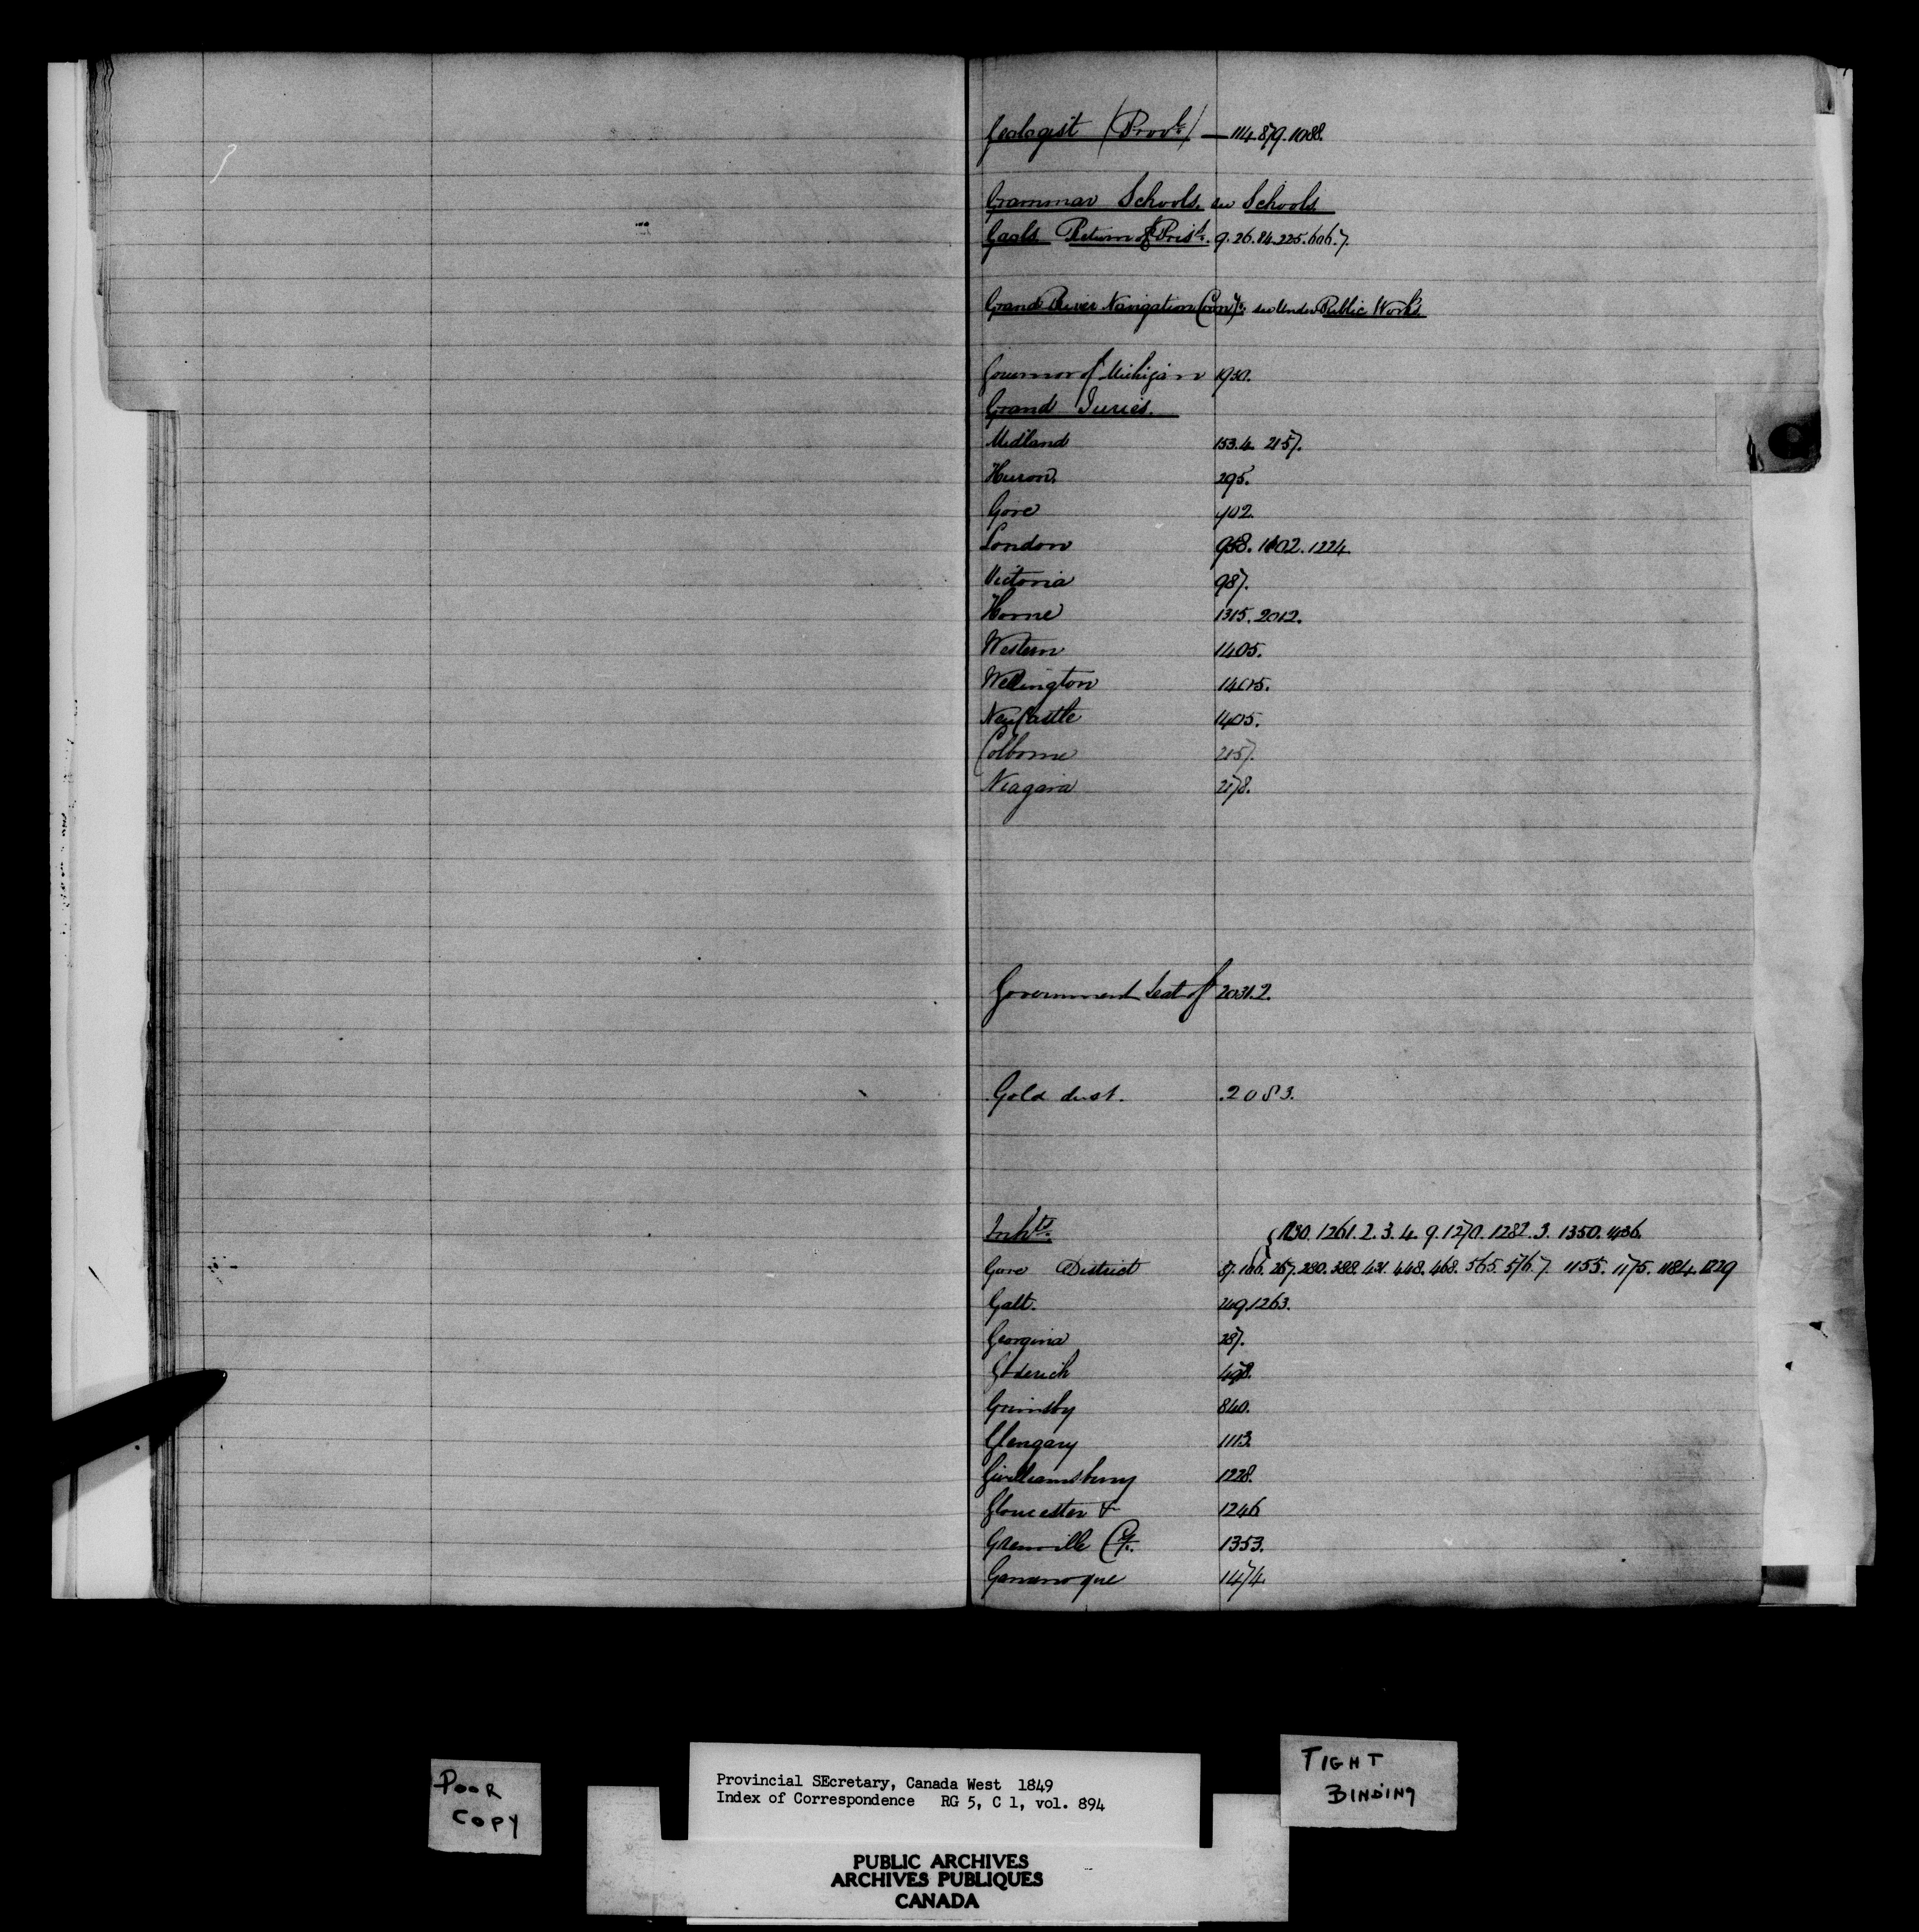 Geologist (Provl.) — 114.879.1088.
Grammar Schools. see Schools.
Gaols Return of Pris. 9.26.84.225.606.7
Grand River Navigation Comy. see under Public Works.
Governor of Michigan 1930.
Grand Juries.
Midland 153.4. 2157.
Huron 295.
Gore 402.
London 958. 1602. 1224.
Victoria 987.
Home 1315. 2012.
Western 1405.
Wellington 1405.
NewCastle 1405.
Colborne 2157.
Niagara 2178.
Government Seat of 2031.2.
Gold dust. .2083.
Inhts.
{1230.1261.2.3.4.9.1270.1282.3.1350.1436.
Gore District 87.166.267.280.388.431.448.468.565.576.7 1155.1175.1184.1229
Galt. 249.1263.
Georgina 287.
Goderich 498.
Grimsby 840.
Glengary 1113.
Gwilliamsbury 1228.
Gloucester + 1246
Grenville Cy. 1353.
Gananoque 1474
POOR
COPY
Provincial SEcretary, Canada West 1849
Index of Correspondence RG 5, C 1, vol. 894
TIGHT
BINDING
PUBLIC ARCHIVES
ARCHIVES PUBLIQUES
CANADA